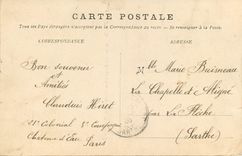 CARTE POSTALE
Tous les Pays étrangers n'acceptent pas la Correspondance au recto — Se renseigner à la Poste.
CORRESPONDANCE
ADRESSE
Bon souvenir
et
Amitiés
Claudius
21e Colonial 5e Compagnie
Chateau d'Eau
Paris
Mlle Marie Buisneau
La Chapelle d'Aligné
par La Flèche
(Sarthe)